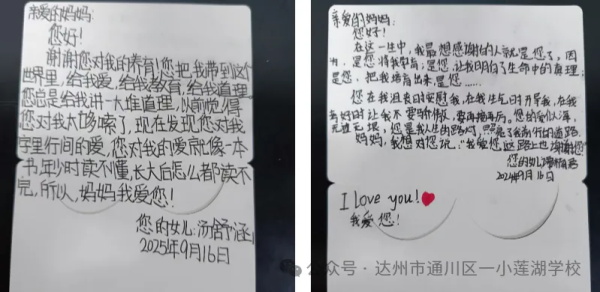 亲爱的妈妈:
您好!
谢谢您对我的养育!您把我带到这个
世界里,给我爱,给我教育,给我道理
您总是给我讲一大堆道理,以前觉得
您对我太啰嗦了,现在发现您对我
字里行间的爱,您对我的爱就像一本
书,年少时读不懂,长大后怎么都读不
完,所以,妈妈我爱您!
您的女儿:汤舒涵
2025年9月16日
亲爱的妈妈:
您好!
在这一生中,我最想感谢的人就是您了,因
是您将我养育;是您,让我明白了生命中的真理;
是您,把我培育出来,是您……
您在我沮丧时安慰我,在我生气时开导我,在我
考好时让我不要骄傲,要再接再厉。您的爱似海,
无边无垠,您是我人生的路灯,照亮了我前行的道路。
妈妈,我想对您说:“我爱您,这一路上也谢谢您!
您的女儿
2024年9月16日
I love you!
我爱您!
公众号·达州市通川区一小莲湖学校